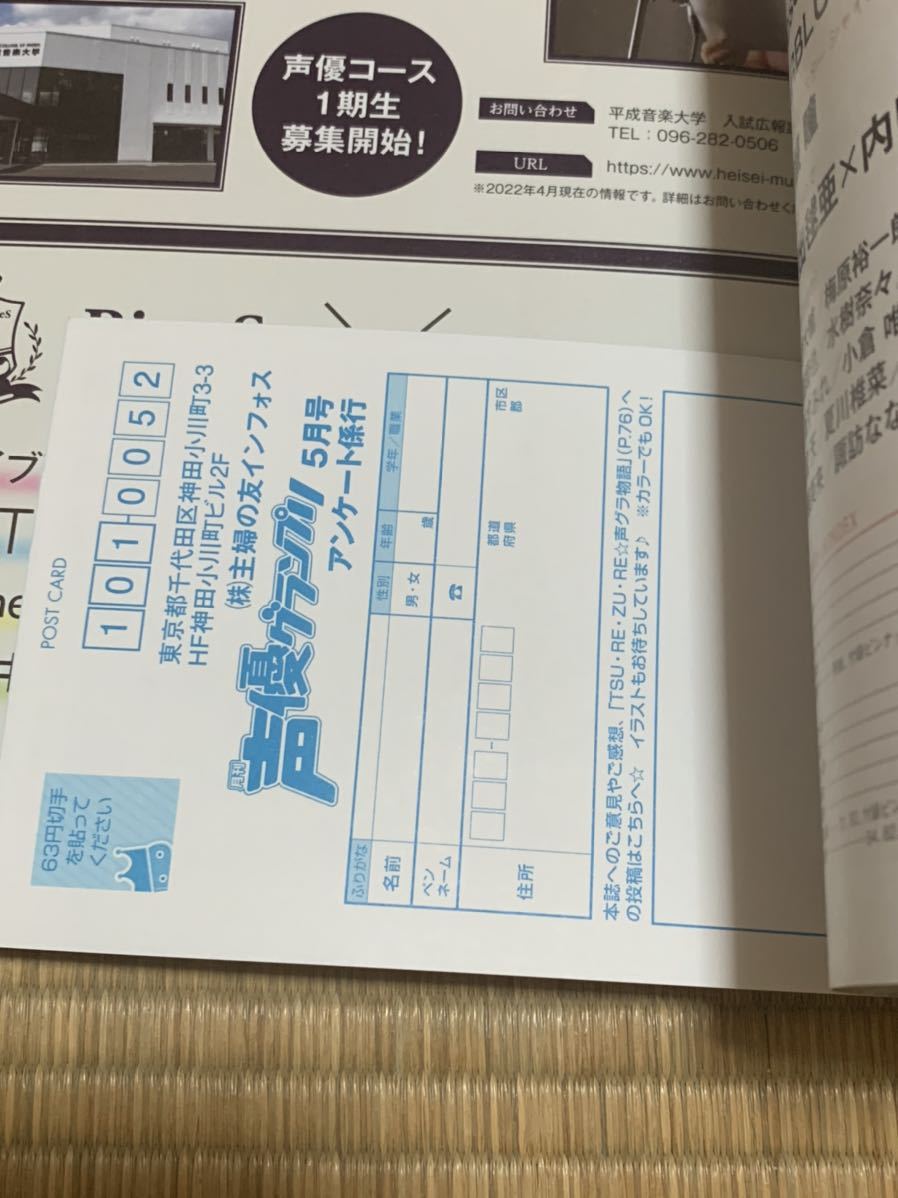 音楽大学
声優コース
1期生
募集開始！
お問い合わせ
平成音楽大学 入試広報
TEL：096-282-0506
URL
https://www.heisei-mu
※2022年4月現在の情報です。詳細はお問い合わせくだ
POST CARD
1010052
東京都千代田区神田小川町3-3
HF神田小川町ビル2F
(株)主婦の友インフォス
月刊
声優グランプリ 5月号
アンケート係行
63円切手
を貼って
ください
ふりがな
名前
性別
男・女
年齢
歳
学年／職業
ペン
ネーム
☎
住所
都道
府県
市区
郡
本誌へのご意見やご感想、「TSU・RE・ZU・RE☆声グラ物語」(P.76)へ
の投稿はこちらへ☆ イラストもお待ちしています♪ ※カラーでもOK!
亜×内
梅原裕一郎
水樹奈々
小倉 唯
夏川椎菜／
諏訪なな